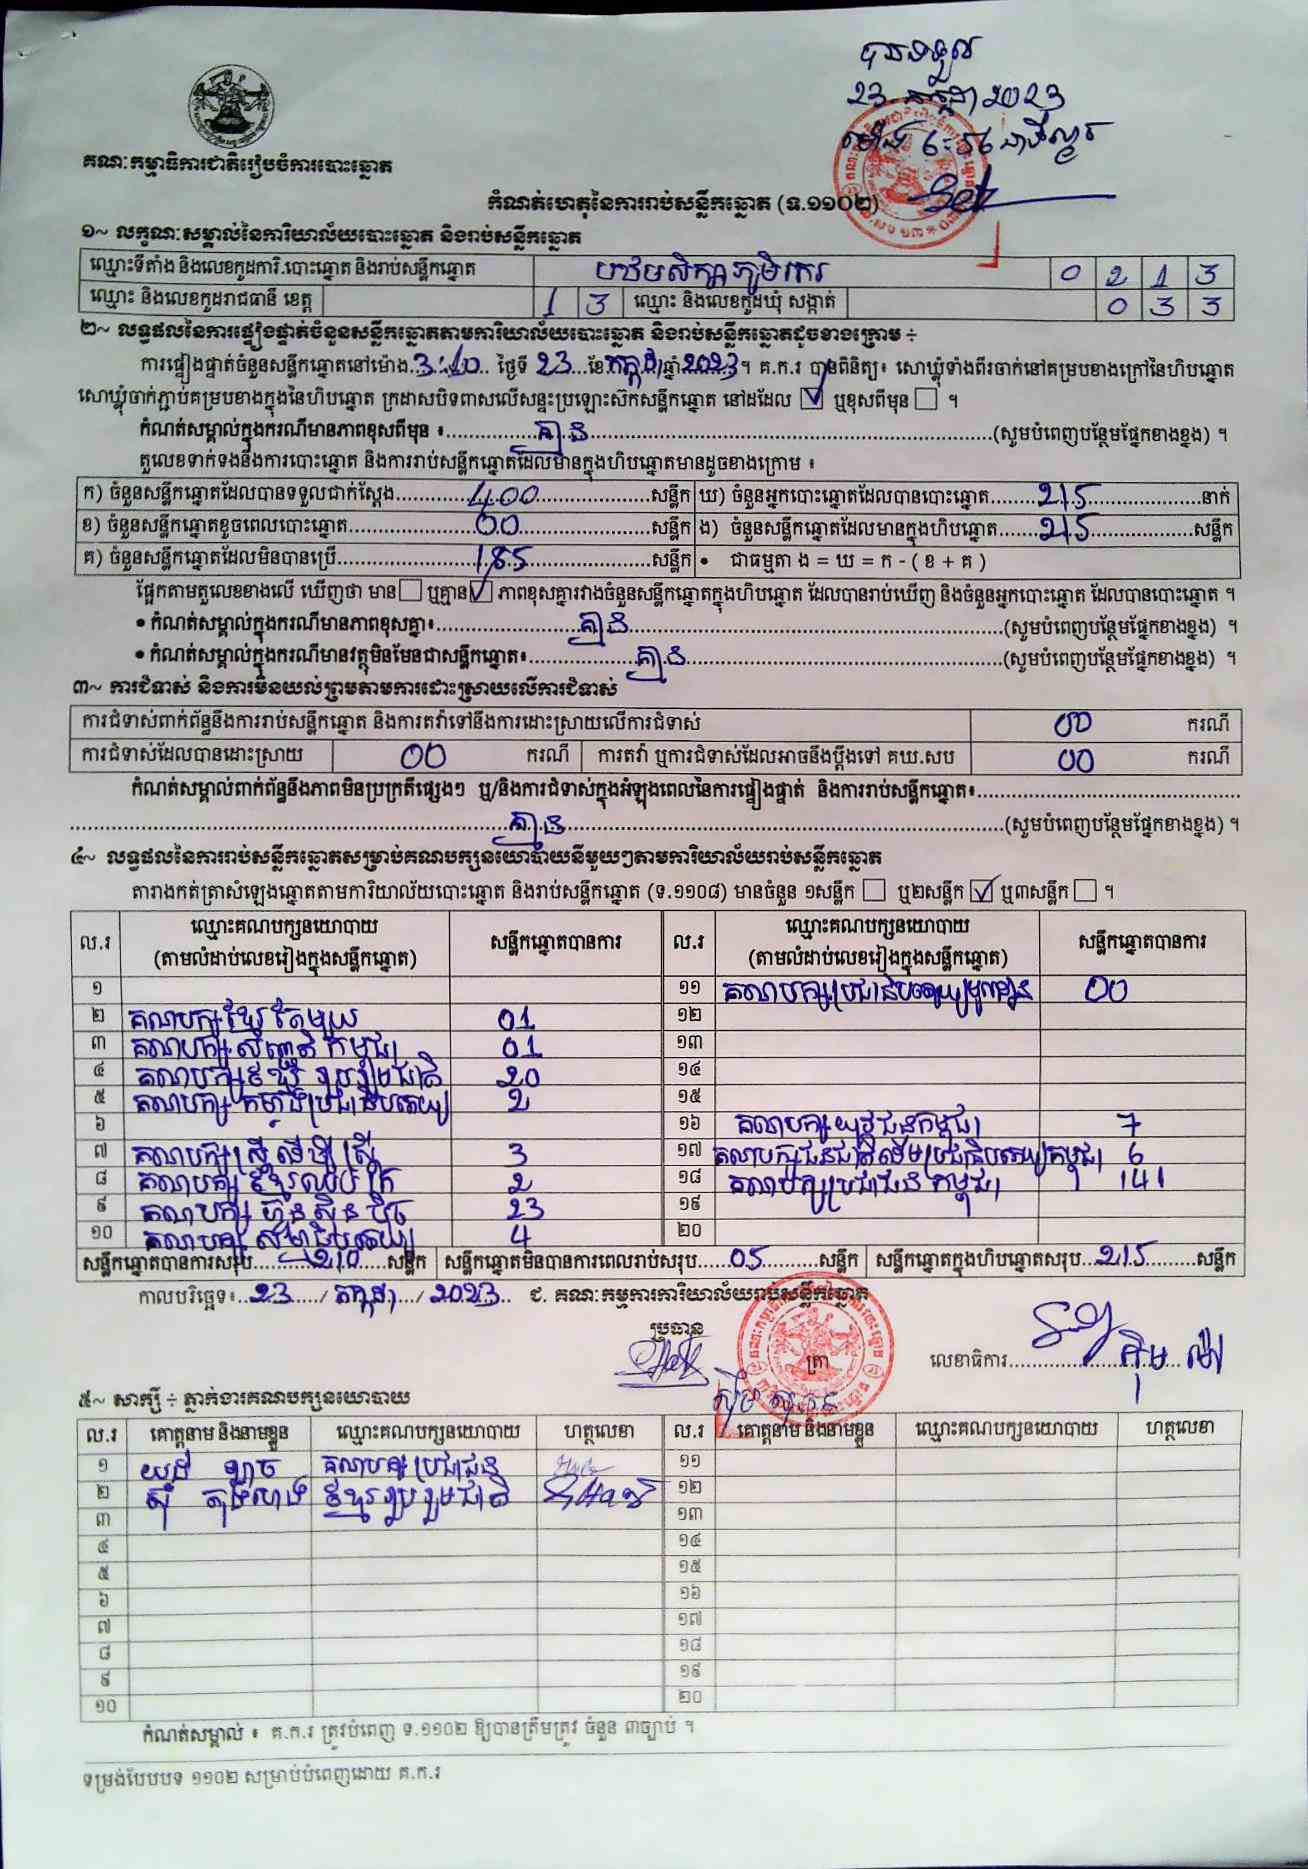 បានទទួល
23 កក្កដា 2023
ម៉ោង 6:56 នាទីល្ងាច
គណៈកម្មាធិការជាតិរៀបចំការបោះឆ្នោត
កំណត់ហេតុនៃការរាប់សន្លឹកឆ្នោត (ទ.១១០២)
១~ លក្ខណៈសម្គាល់នៃការិយាល័យបោះឆ្នោត និងរាប់សន្លឹកឆ្នោត
ឈ្មោះទីតាំង និងលេខកូដការិ.បោះឆ្នោត និងរាប់សន្លឹកឆ្នោត បឋមសិក្សាភូមិកេរ 0 2 1 3
ឈ្មោះ និងលេខកូដរាជធានី ខេត្ត 1 3 ឈ្មោះ និងលេខកូដឃុំ សង្កាត់ 0 3 3
២~ លទ្ធផលនៃការផ្ទៀងផ្ទាត់ចំនួនសន្លឹកឆ្នោតតាមការិយាល័យបោះឆ្នោត និងរាប់សន្លឹកឆ្នោតដូចខាងក្រោម ÷
ការផ្ទៀងផ្ទាត់ចំនួនសន្លឹកឆ្នោតនៅម៉ោង 3:10 ថ្ងៃទី 23 ខែ កក្កដា ឆ្នាំ 2023 ។ គ.ក.រ បានពិនិត្យ៖ សោឃ្លុំទាំងពីរចាក់នៅគម្របខាងក្រៅនៃហិបឆ្នោត
សោឃ្លុំចាក់ភ្ជាប់គម្របខាងក្នុងនៃហិបឆ្នោត ក្រដាសបិទពាសលើសន្ទះប្រឡោះស៊កសន្លឹកឆ្នោត នៅដដែល ☑ ឬខុសពីមុន ☐ ។
កំណត់សម្គាល់ក្នុងករណីមានភាពខុសពីមុន ៖ គ្មាន (សូមបំពេញបន្ថែមផ្នែកខាងខ្នង) ។
តួលេខទាក់ទងនឹងការបោះឆ្នោត និងការរាប់សន្លឹកឆ្នោតដែលមានក្នុងហិបឆ្នោតមានដូចខាងក្រោម ៖
ក) ចំនួនសន្លឹកឆ្នោតដែលបានទទួលជាក់ស្តែង 400 សន្លឹក ឃ) ចំនួនអ្នកបោះឆ្នោតដែលបានបោះឆ្នោត 215 នាក់
ខ) ចំនួនសន្លឹកឆ្នោតខូចពេលបោះឆ្នោត 00 សន្លឹក ង) ចំនួនសន្លឹកឆ្នោតដែលមានក្នុងហិបឆ្នោត 215 សន្លឹក
គ) ចំនួនសន្លឹកឆ្នោតដែលមិនបានប្រើ 185 សន្លឹក • ជាធម្មតា ង = ឃ = ក - ( ខ + គ )
ផ្អែកតាមតួលេខខាងលើ ឃើញថា មាន ☐ ឬគ្មាន ☑ ភាពខុសគ្នារវាងចំនួនសន្លឹកឆ្នោតក្នុងហិបឆ្នោត ដែលបានរាប់ឃើញ និងចំនួនអ្នកបោះឆ្នោត ដែលបានបោះឆ្នោត ។
• កំណត់សម្គាល់ក្នុងករណីមានភាពខុសគ្នា៖ គ្មាន (សូមបំពេញបន្ថែមផ្នែកខាងខ្នង) ។
• កំណត់សម្គាល់ក្នុងករណីមានវត្ថុមិនមែនជាសន្លឹកឆ្នោត៖ គ្មាន (សូមបំពេញបន្ថែមផ្នែកខាងខ្នង) ។
៣~ ការជំទាស់ និងការមិនយល់ព្រមតាមការដោះស្រាយលើការជំទាស់
ការជំទាស់ពាក់ព័ន្ធនឹងការរាប់សន្លឹកឆ្នោត និងការតវ៉ាទៅនឹងការដោះស្រាយលើការជំទាស់ 00 ករណី
ការជំទាស់ដែលបានដោះស្រាយ 00 ករណី ការតវ៉ា ឬការជំទាស់ដែលអាចនឹងប្តឹងទៅ គឃ.សប 00 ករណី
កំណត់សម្គាល់ពាក់ព័ន្ធនឹងភាពមិនប្រក្រតីផ្សេងៗ ឬ/និងការជំទាស់ក្នុងអំឡុងពេលនៃការផ្ទៀងផ្ទាត់ និងការរាប់សន្លឹកឆ្នោត៖
គ្មាន (សូមបំពេញបន្ថែមផ្នែកខាងខ្នង) ។
៤~ លទ្ធផលនៃការរាប់សន្លឹកឆ្នោតសម្រាប់គណបក្សនយោបាយនីមួយៗតាមការិយាល័យរាប់សន្លឹកឆ្នោត
តារាងកត់ត្រាសំឡេងឆ្នោតតាមការិយាល័យបោះឆ្នោត និងរាប់សន្លឹកឆ្នោត (ទ.១១០៨) មានចំនួន ១សន្លឹក ☐ ឬ២សន្លឹក ☑ ឬ៣សន្លឹក ☐ ។
ល.រ ឈ្មោះគណបក្សនយោបាយ (តាមលំដាប់លេខរៀងក្នុងសន្លឹកឆ្នោត) សន្លឹកឆ្នោតបានការ ល.រ ឈ្មោះគណបក្សនយោបាយ (តាមលំដាប់លេខរៀងក្នុងសន្លឹកឆ្នោត) សន្លឹកឆ្នោតបានការ
១ ១១ គណបក្សប្រជាធិបតេយ្យមូលដ្ឋាន 00
២ គណបក្សខ្មែរតែមួយ 01 ១២
៣ គណបក្សសំបុកឃ្មុំកម្ពុជា 01 ១៣
៤ គណបក្សខ្មែររួបរួមជាតិ 20 ១៤
៥ គណបក្សកម្លាំងប្រជាធិបតេយ្យ 2 ១៥
៦ ១៦ គណបក្សយុវជនកម្ពុជា 7
៧ គណបក្សស្ត្រីដើម្បីស្ត្រី 3 ១៧ គណបក្សជនជាតិដើមប្រជាធិបតេយ្យកម្ពុជា 6
៨ គណបក្សខ្មែរឈប់ក្រ 2 ១៨ គណបក្សប្រជាជនកម្ពុជា 141
៩ គណបក្សហ៊្វុនស៊ិនប៉ិច 23 ១៩
១០ គណបក្សធម្មាធិបតេយ្យ 4 ២០
សន្លឹកឆ្នោតបានការសរុប 210 សន្លឹក សន្លឹកឆ្នោតមិនបានការពេលរាប់សរុប 05 សន្លឹក សន្លឹកឆ្នោតក្នុងហិបឆ្នោតសរុប 215 សន្លឹក
កាលបរិច្ឆេទ៖ 23 / កក្កដា / 2023 ជ. គណៈកម្មការការិយាល័យរាប់សន្លឹកឆ្នោត
ប្រធាន
ត្រា
លេខាធិការ
៥~ សាក្សី ÷ ភ្នាក់ងារគណបក្សនយោបាយ
ល.រ គោត្តនាម និងនាមខ្លួន ឈ្មោះគណបក្សនយោបាយ ហត្ថលេខា ល.រ គោត្តនាម និងនាមខ្លួន ឈ្មោះគណបក្សនយោបាយ ហត្ថលេខា
១ គណបក្សប្រជាជន ១១
២ ខ្មែររួបរួមជាតិ ១២
៣ ១៣
៤ ១៤
៥ ១៥
៦ ១៦
៧ ១៧
៨ ១៨
៩ ១៩
១០ ២០
កំណត់សម្គាល់ ៖ គ.ក.រ ត្រូវបំពេញ ទ.១១០២ ឱ្យបានត្រឹមត្រូវ ចំនួន ៣ច្បាប់ ។
ទម្រង់បែបបទ ១១០២ សម្រាប់បំពេញដោយ គ.ក.រ